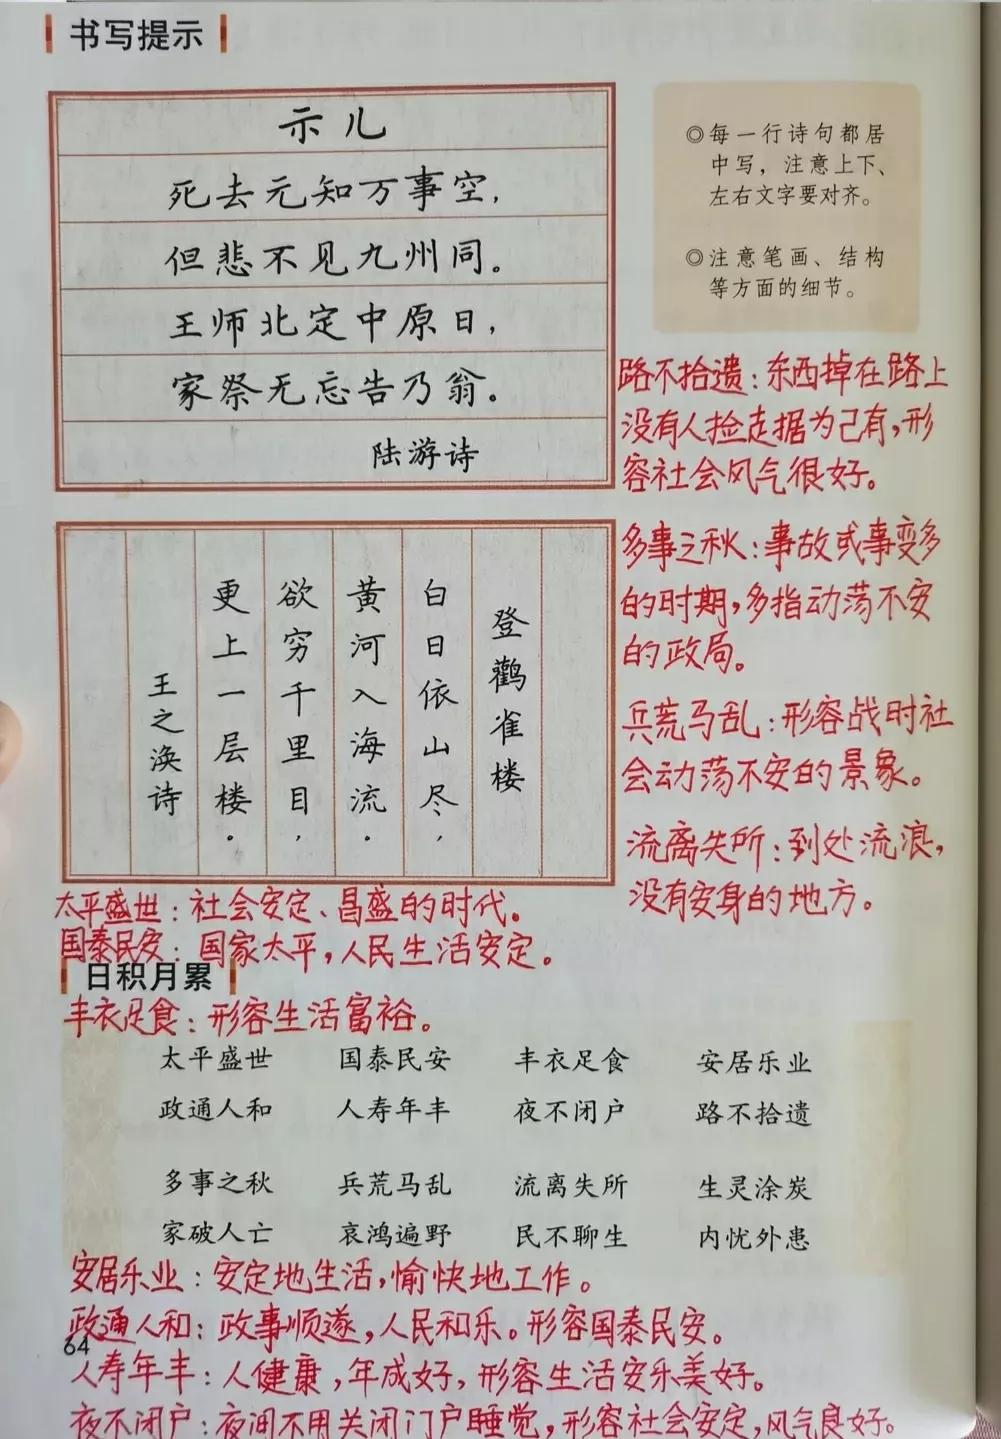 书写提示
示儿
死去元知万事空，
但悲不见九州同。
王师北定中原日，
家祭无忘告乃翁。
陆游诗
◎每一行诗句都居
中写，注意上下、
左右文字要对齐。
◎注意笔画、结构
等方面的细节。
路不拾遗：东西掉在路上
没有人捡走据为己有，形
容社会风气很好。
多事之秋：事故或事变多
的时期，多指动荡不安
的政局。
兵荒马乱：形容战时社
会动荡不安的景象。
流离失所：到处流浪，
没有安身的地方。
登鹳雀楼
白日依山尽，
黄河入海流。
欲穷千里目，
更上一层楼。
王之涣诗
太平盛世：社会安定、昌盛的时代。
国泰民安：国家太平，人民生活安定。
日积月累
丰衣足食：形容生活富裕。
太平盛世 国泰民安 丰衣足食 安居乐业
政通人和 人寿年丰 夜不闭户 路不拾遗
多事之秋 兵荒马乱 流离失所 生灵涂炭
家破人亡 哀鸿遍野 民不聊生 内忧外患
安居乐业：安定地生活，愉快地工作。
政通人和：政事顺遂，人民和乐。形容国泰民安。
64
人寿年丰：人健康，年成好，形容生活安乐美好。
夜不闭户：夜间不用关闭门户睡觉，形容社会安定，风气良好。